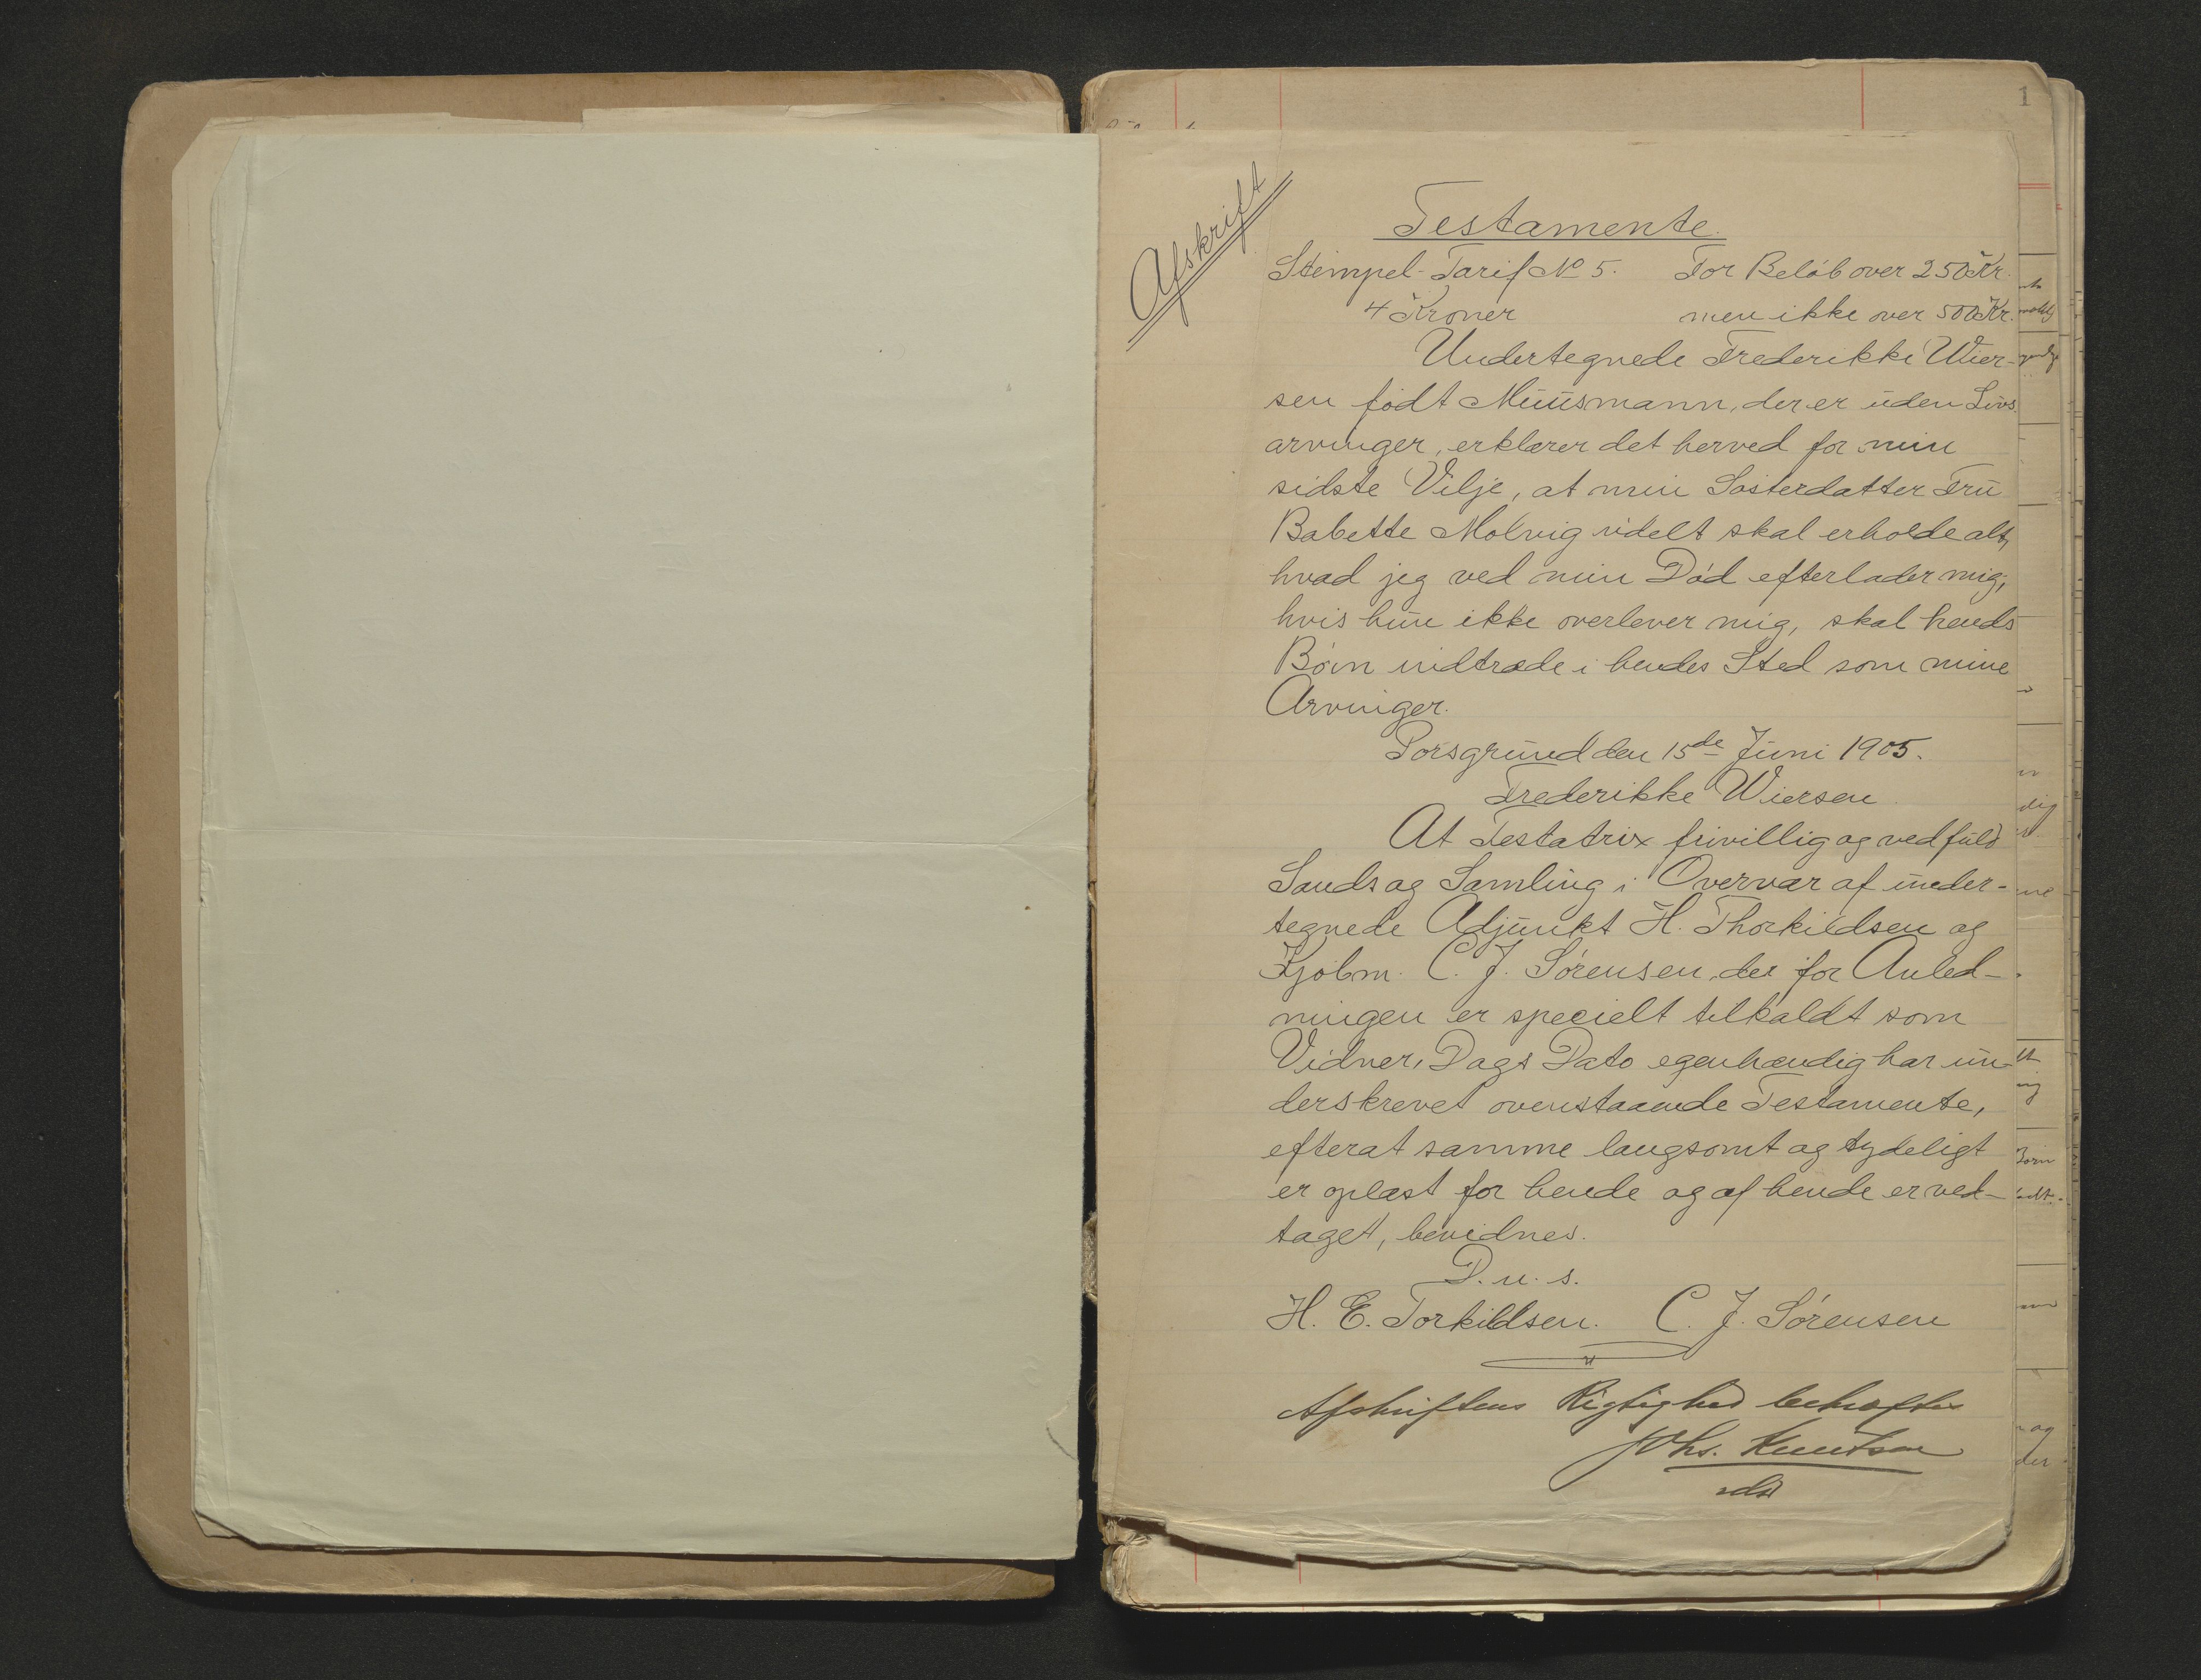 1
Afskrift
Testamente.
Stempel-Tarif No 5. For Beløb over 250 Kr.
4 Kroner men ikke over 500 Kr.
Undertegnede Frederikke Wier-
sen født Muusmann, der er uden Livs
arvinger, erklærer det herved for min
sidste Vilje, at min Søsterdatter Fru
Babette Molvig udelt skal erholde alt,
hvad jeg ved min Død efterlader mig;
hvis hun ikke overlever mig, skal hends
Børn indtræde i hendes Sted som mine
Arvinger.
Porsgrund den 15de Juni 1905.
Frederikke Wiersen
At Testatrix frivillig og ved fuld
Sands og Samling i Overvær af under-
tegnede Adjunkt H. Thorkildsen og
Kjøbm. C. J. Sørensen, der for Anled-
ningen er specielt tilkaldt som
Vidner, Dags Dato egenhændig har un-
derskrevet ovenstaaende Testamente,
efterat samme langsomt og tydeligt
er oplæst for hende og af hende er ved-
taget, bevidnes.
D. u. s.
H. E. Torkildsen. C. J. Sørensen
Afskriftens Rigtighed bekræftes
Johs. Knutsen